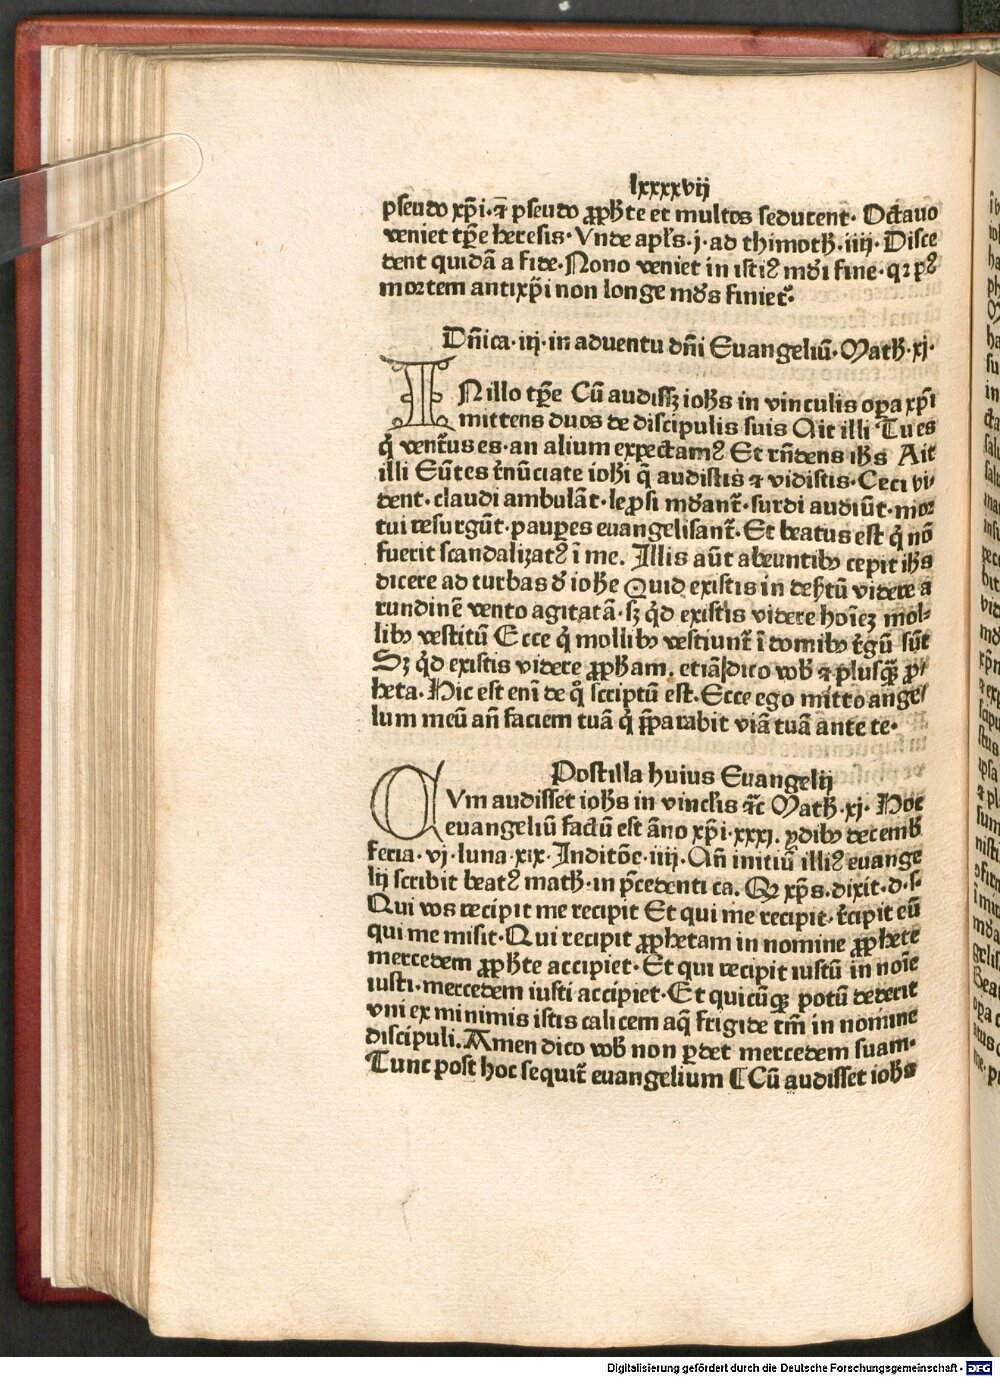 lxxxxvij
pseudo xp̄i·⁊ pseudo ꝓph̄te et multos seducent· Octauo
veniet tp̄e heresis·Vnde apl̄s·j·ad thimoth̄·iiij·Disce
dent quidā a fide·Nono veniet in istiꝰ mūdi fine·qꝛ pꝰ
mortem antixp̄i non longe mūds finietꝰ·
Dn̄ica·iij·in aduentu dn̄i Euangeliū·Math̄·xj·
IN illo tp̄e Cū audissꝫ ioh̄s in vinculis oꝑa xp̄i
mittens duos de discipulis suis Ait illi Tu es
q̄ ventꝰus es·an alium expectamꝰ Et rn̄dens ih̄s Ait
illi Eūtes r̄nūciate ioh̄i q̄ audistis ⁊ vidistis·Ceci vi⸗
dent·claudi ambulāt·lepsi mūdant̄·surdi audiūt·mor
tui resurgūt·pauꝑes euangelisant̄·Et beatus est q̄ nō
fuerit scandalizatꝰ ī me. Illis aūt abeuntibꝰ cepit ih̄s
dicere ad turbas d̄ ioh̄e Quid existis in deẜtū videre a
rundinē vento agitatā·sꝫ q̄d existis videre hoīeꝫ mol⸗
libꝰ vestitū Ecce q̄ mollibꝰ vestiunt̄ ī domibꝰ r̄gū sūt
Sꝫ q̄d existis videre ꝓpham. etiā dico vob̄ ⁊ plusqꝫ̄ ꝓ⸗
heta. Hic est eni̅ de q̊ scriptū est. Ecce ego mitto ange⸗
lum meū an̄ faciem tuā q̄ p̄parabit viā tuā ante te·
Postilla huius Euangelij
CVm audisset ioh̄s in vincl̄is ⁊c̄ Math̄·xj· Hoc
euangeliū factū est āno xp̄i·xxxj. ydibꝰ decemb̄
feria·vj·luna·xix·Inditōe·iiij·An̄ initiū illiꝰ euange
lij scribit beatꝰ math̄·in p̄cedenti ca. Qꝫ xp̄s·dixit·d·s·
Qui vos recipit me recipit Et qui me recipit·r̄cipit eū
qui me misit·Qui recipit ꝓphetam in nomine ꝓphete
mercedem ꝓph̄te accipiet·Et qui recipit iustū in noīe
iusti·mercedem iusti accipiet·Et quicūqꝫ potū dederit
vni ex minimis istis calicem aq̄ frigide tm̄ in nomine
discipuli. Amen dico vob̄ non ꝑdet mercedem suam·
Tunc post hoc sequit̄ euangelium ¶Cū audisset ioh̄s
Digitalisierung gefördert durch die Deutsche Forschungsgemeinschaft - DFG